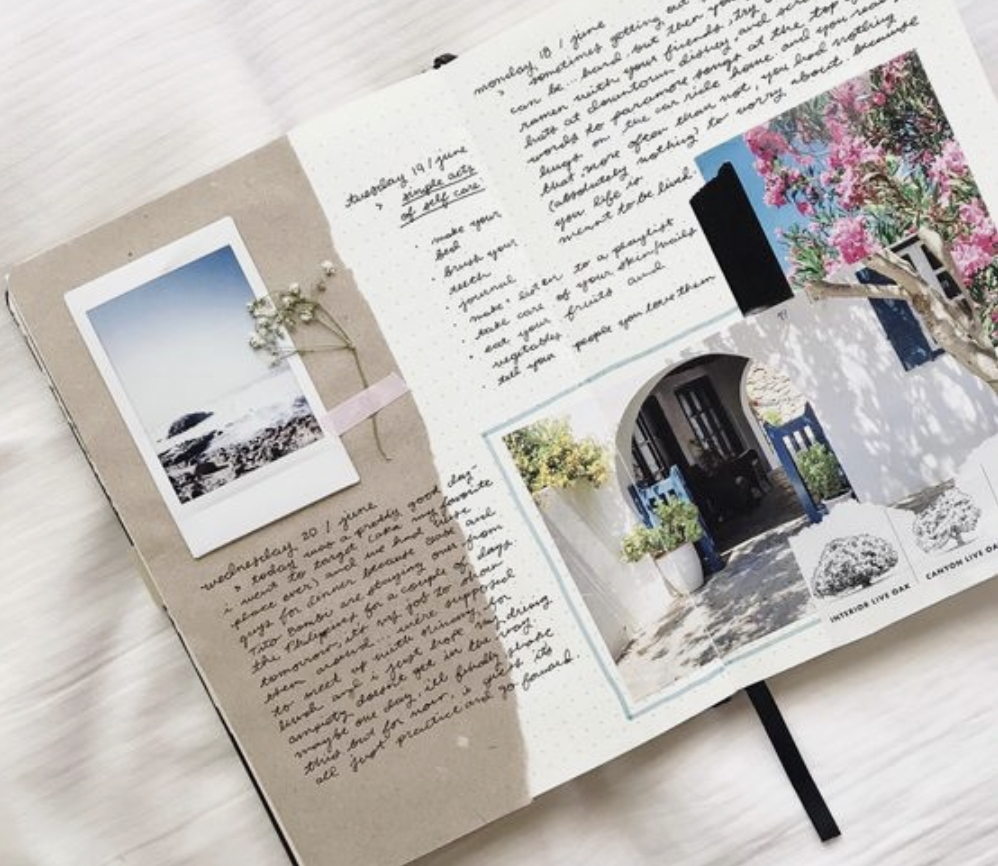 tuesday 19 / june
simple acts
of self care
• make your
bed
• brush your
teeth
• journal
• make + listen to a playlist
• take care of your skin / nails
• eat your fruits and
vegetables
• tell your people you love them
wednesday 20 / june
today was a pretty good day -
i went to target (aka my favorite
place ever) and we had wise
guys for dinner because ease and
tito bambi are staying over from
the Philippines for a couple of days.
tomorrow, its my job to show
them around... were supposed
to meet up with ninang for
lunch and i just hope my driving
anxiety doesn't get in the way.
maybe one day, ill finally shake
this but for now, i guess its
all just practice and go forward.
monday 18 / june
sometimes getting out
can be... hard but then you
ramen with your friends, try
hats at downtown disney and
words to paramore songs at the top
hugs on the car ride home and you
that more often than not, you had nothing
(absolutely nothing) to worry about. because
you life is
meant to be lived.
INTERIOR LIVE OAK
CANYON LIVE OAK